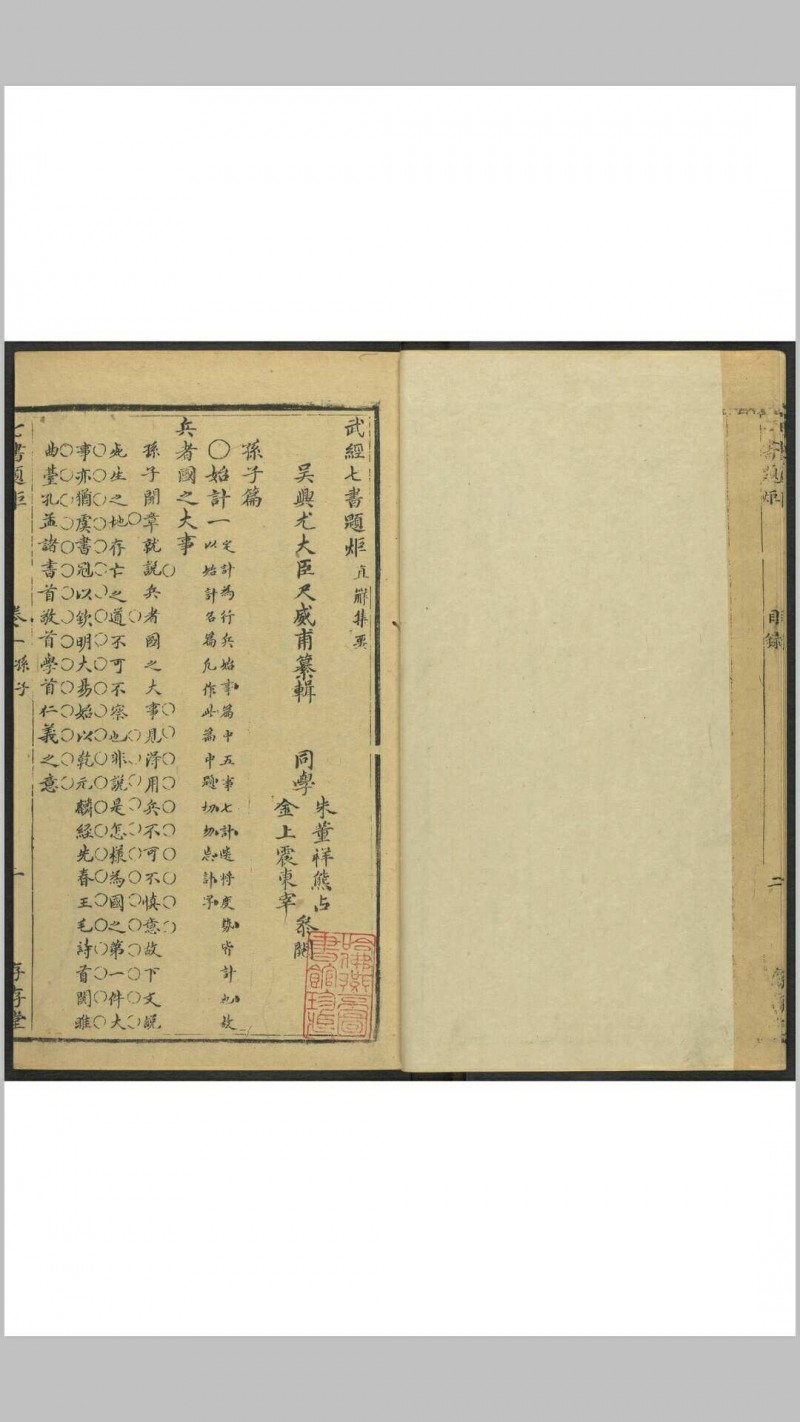 書題炬
目錄
二
武經七書題炬 直解集要
吳興尤大臣尺威甫纂輯
同學
朱董祥熊占
金上震東宰
叅閱
哈佛燕京圖書館珍藏
孫子篇
○始計一
定計為行兵始事篇中五事七計是將度務皆計也故
以始計名篇凡作此篇中題切勿忘計字
兵者國之大事
孫子開章就說兵者國之大事見得用兵不可不慎意故下文說
死生之地存亡之道不可不察也非說是怎樣為國之第一件大
事亦猶虞書冠以欽明大易始以乾元麟經先春王毛詩首關雎
曲臺孔孟諸書首敬首學首仁義之意
七書題炬
卷一
孫子
一
存存堂